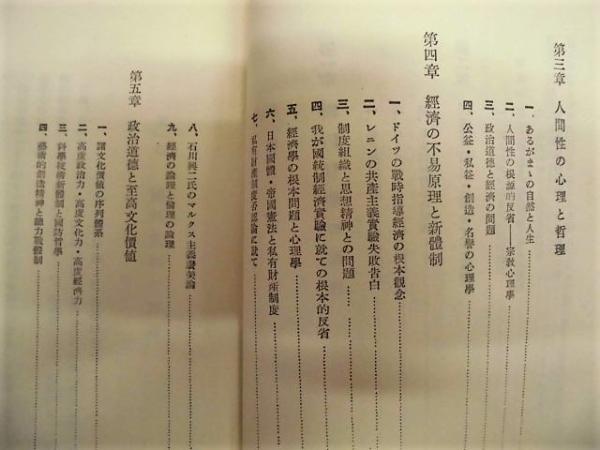 第三章　人間性の心理と哲理
一、あるがまゝの自然と人生
二、人間性の根源的反省――宗教心理學
三、政治道德と經濟の問題
四、公益・私益・創造・名譽の心理學
第四章　經濟の不易原理と新體制
一、ドイツの戰時指導經濟の根本觀念
二、レニンの共產主義實驗失敗告白
三、制度組織と思想精神との問題
四、我が國統制經濟實驗に就ての根本的反省
五、經濟學の根本問題と心理學
六、日本國體・帝國憲法と私有財產制度
七、私有財產制度否認論に就て
八、石川興二氏のマルクス主義讚美論
九、經濟の論理と倫理の論理
第五章　政治道德と至高文化價値
一、諸文化價値の序列體系
二、高度政治力・高度文化力・高度經濟力
三、科學技術新體制と國防哲學
四、藝術的創造精神と總力戰體制